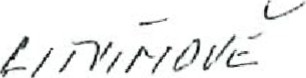 LITVÍNOVĚ